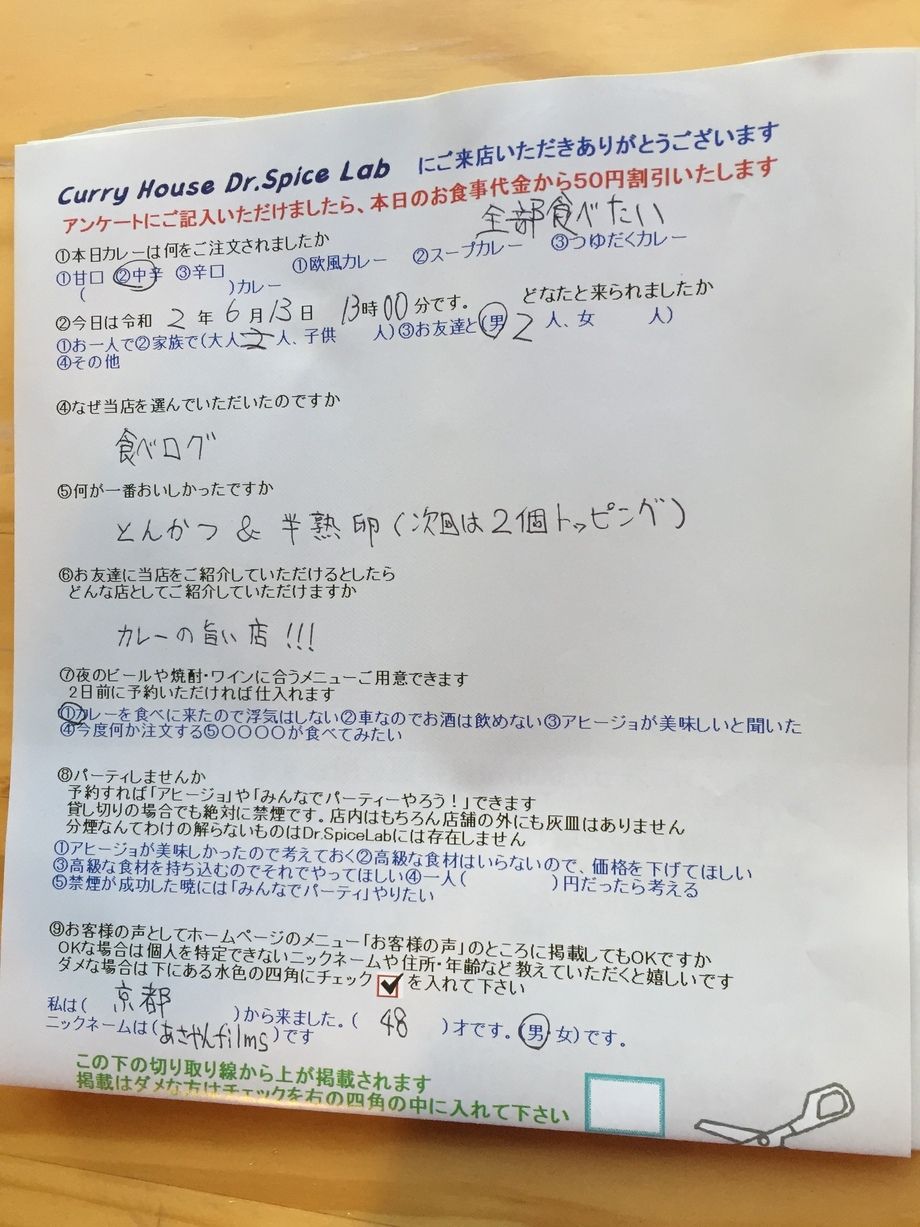 Curry House Dr.Spice Lab にご来店いただきありがとうございます
アンケートにご記入いただけましたら、本日のお食事代金から50円割引いたします
全部食べたい
①本日カレーは何をご注文されましたか
①甘口 ②中辛 ③辛口 ①欧風カレー ②スープカレー ③つゆだくカレー
( )カレー
②今日は令和 2 年 6 月 13 日 13時 00 分です。 どなたと来られましたか
①お一人で②家族で(大人 2 人、子供 人)③お友達と(男 2 人、女 人)
④その他
④なぜ当店を選んでいただいたのですか
食べログ
⑤何が一番おいしかったですか
とんかつ & 半熟卵(次回は2個トッピング)
⑥お友達に当店をご紹介していただけるとしたら
どんな店としてご紹介していただけますか
カレーの旨い店!!!
⑦夜のビールや焼酎・ワインに合うメニューご用意できます
2日前に予約いただければ仕入れます
①カレーを食べに来たので浮気はしない②車なのでお酒は飲めない③アヒージョが美味しいと聞いた
④今度何か注文する⑤〇〇〇〇が食べてみたい
⑧パーティしませんか
予約すれば「アヒージョ」や「みんなでパーティーやろう!」できます
貸し切りの場合でも絶対に禁煙です。店内はもちろん店舗の外にも灰皿はありません
分煙なんてわけの解らないものはDr.SpiceLabには存在しません
①アヒージョが美味しかったので考えておく②高級な食材はいらないので、価格を下げてほしい
③高級な食材を持ち込むのでそれでやってほしい④一人( )円だったら考える
⑤禁煙が成功した暁には「みんなでパーティ」やりたい
⑨お客様の声としてホームページのメニュー「お客様の声」のところに掲載してもOKですか
OKな場合は個人を特定できないニックネームや住所・年齢など教えていただくと嬉しいです
ダメな場合は下にある水色の四角にチェック を入れて下さい
私は( 京都 )から来ました。( 48 )才です。(男 女)です。
ニックネームは(あさやんfilms)です
この下の切り取り線から上が掲載されます
掲載はダメな方はチェックを右の四角の中に入れて下さい